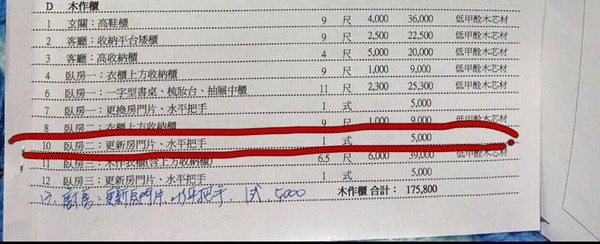 D 木作櫃
1 玄關：高鞋櫃 9 尺 4,000 36,000 低甲醛木芯材
2 客廳：收納平台矮櫃 9 尺 2,500 22,500 低甲醛木芯材
3 客廳：高收納櫃 4 尺 5,000 20,000 低甲醛木芯材
4 臥房一：衣櫃上方收納櫃 9 尺 1,000 9,000 低甲醛木芯材
6 臥房一：一字型書桌、梳妝台、抽屜中櫃 11 尺 2,300 25,300 低甲醛木芯材
7 臥房一：更換房門片、水平把手 1 式 5,000
8 臥房二：衣櫃上方收納櫃 9 尺 1,000 9,000 低甲醛木芯材
10 臥房二：更新房門片、水平把手 1 式 5,000
11 臥房三：木作衣櫃(含上方收納櫃) 6.5 尺 6,000 39,000 低甲醛木芯材
12 臥房三：更新房門片、水平把手 1 式 5,000
13 廚房：更新房門片、水平把手. 1式 5,000 木作櫃 合計： 175,800